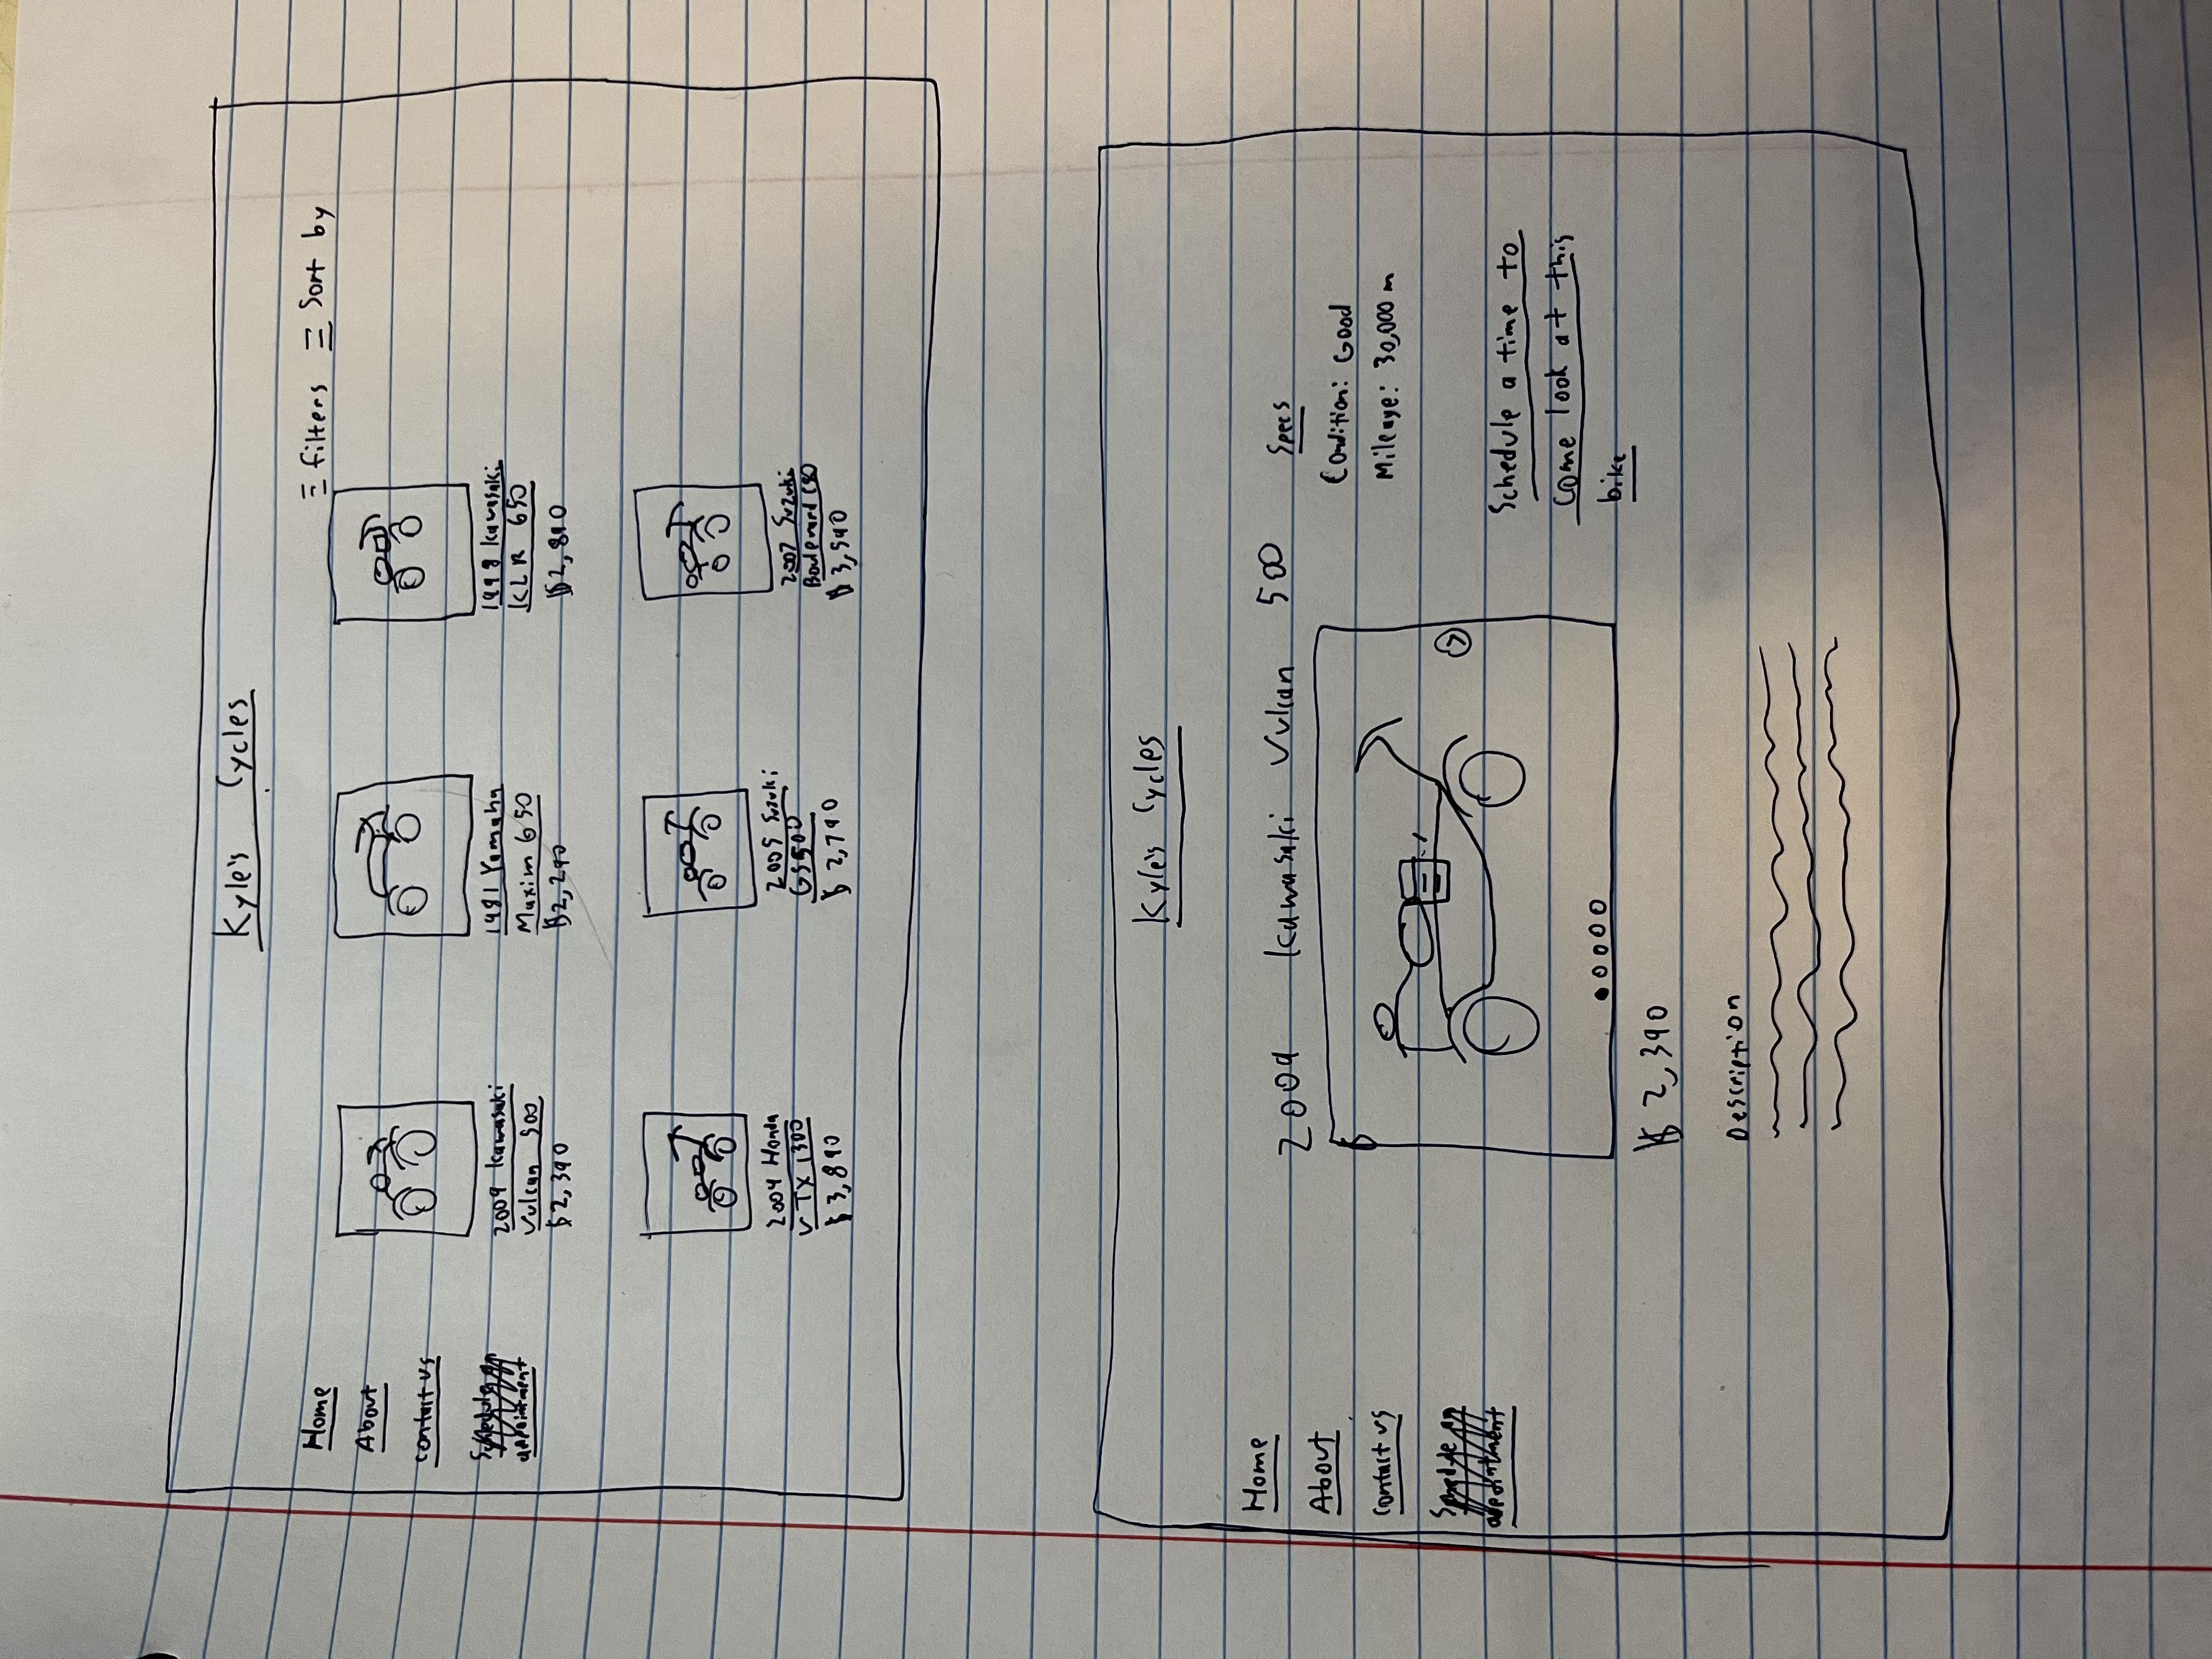 Kyle's Cycles
Home
About
contact us
Schedule an
appointment
≡ filters ≡ Sort by
2009 Kawasaki
Vulcan 500
$2,390
1981 Yamaha
Maxim 650
$2,290
1998 Kawasaki
KLR 650
$2,890
2004 Honda
VTX 1300
$3,890
2005 Suzuki
GS500
$2,790
2007 Suzuki
Boulevard C50
$3,590
Kyle's Cycles
Home
About
contact us
Schedule an
appointment
2009 Kawasaki Vulcan 500
$2,390
Description
Specs
Condition: Good
Mileage: 30,000 m
Schedule a time to
come look at this
bike